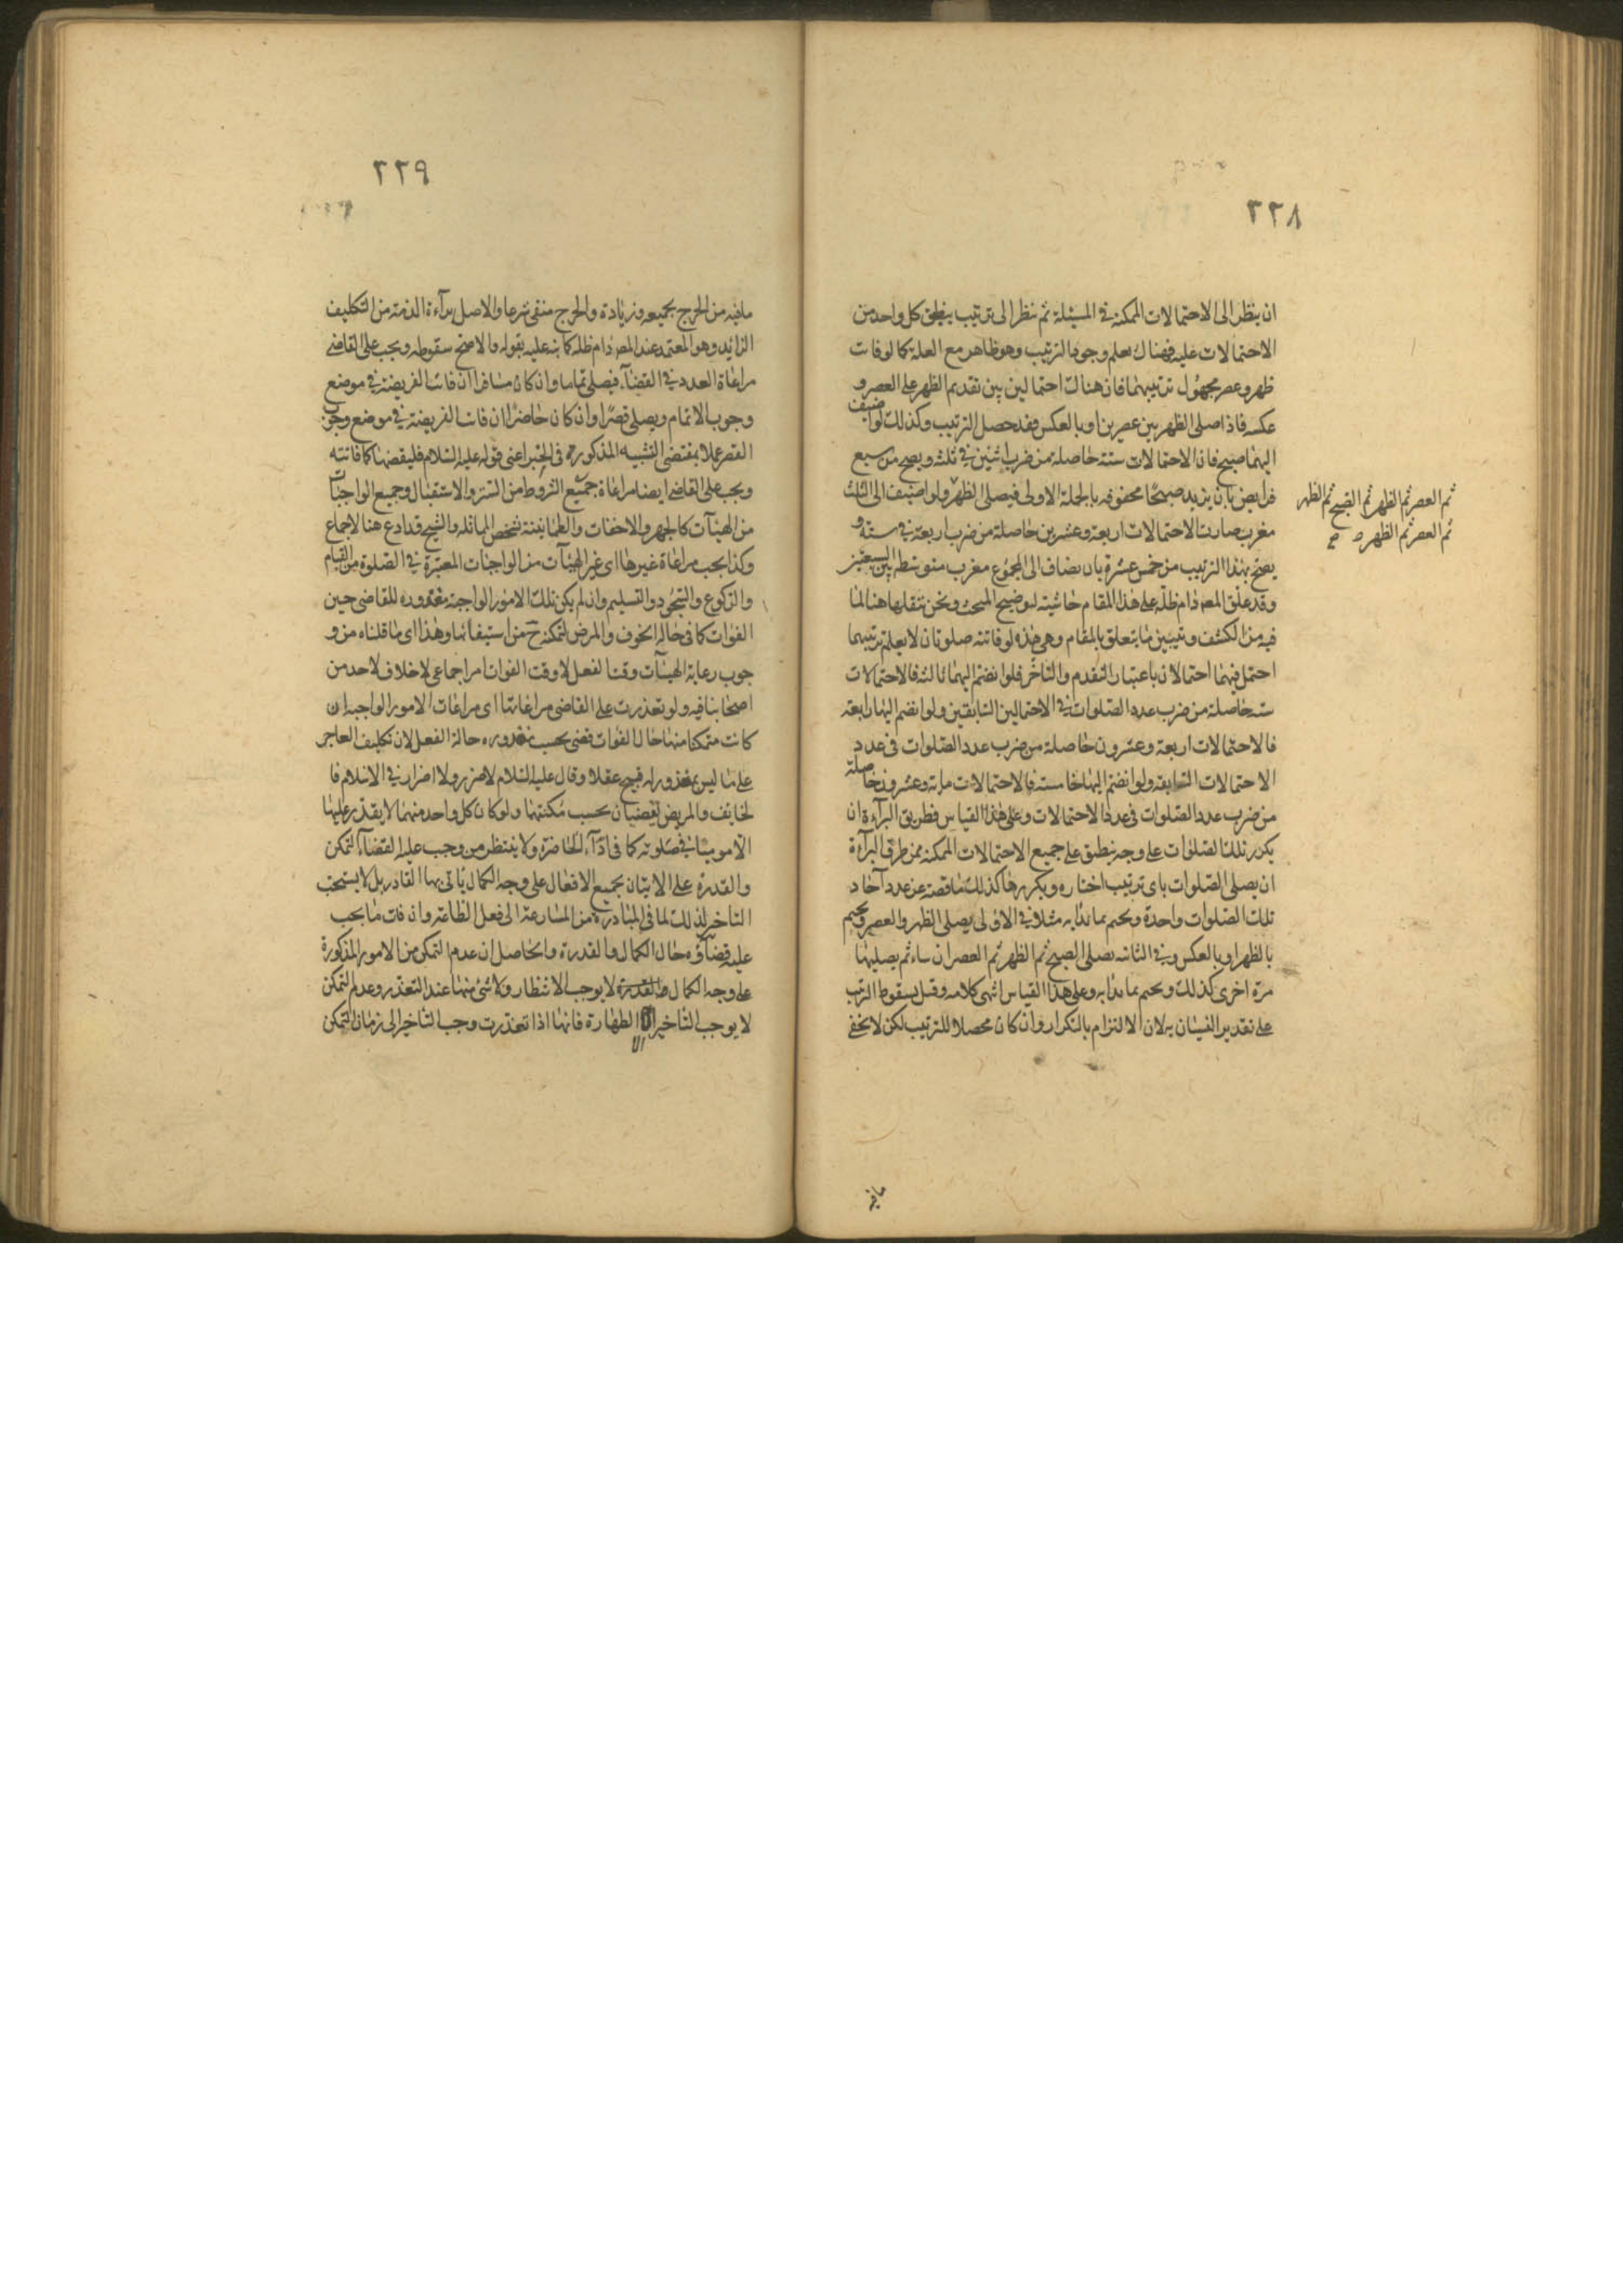 ٢٢٨
ان ينظر الى الاحتمالات الممكنة في المسئلة ثم ننظر الى ترتيب ينطبق كل واحد من
الاحتمالات عليه فهناك يعلم وجوب الترتيب وهو ظاهر مع العلة كما لو فات
ظهر وعصر مجهول ترتيبهما فان هناك احتمالين بين تقديم الظهر على العصر و
عكسه فاذا صلى الظهر بين عصرين او بالعكس فقد حصل الترتيب وكذلك لو اضيف
اليهما صبح فان الاحتمالات ستة حاصلة من ضرب اثنين في ثلثة ويصح من سبع
فرايض بان يزيد صبحا محفوفه بالجملة الاولى فيصلى الظهر ولو اضيف الى الثلث
ثم العصر ثم الظهر ثم الصبح ثم الظهر
ثم العصر ثم الظهر صح
مغرب صارت الاحتمالات اربعة وعشرين حاصلة من ضرب اربعة في ستة و
يصح بهذا الترتيب من خمس عشرة بان يضاف الى المجموع مغرب متوسط بين السبعتين
وقد علق المصم دام ظله على هذا المقام حاشيته لتوضيح المبحث ونحن ننقلها هنا لما
فيه من الكشف وتبيين ما يتعلق بالمقام وهي هذه لو فاتته صلوتان لا يعلم ترتيبهما
احتمل فيهما احتمالان باعتبار التقدم والتاخر فلو انضم اليهما ثالثة فالاحتمالات
ستة حاصلة من ضرب عدد الصلوات في الاحتمالين السابقين ولو انضم اليها رابعة
فالاحتمالات اربعة وعشرون حاصلة من ضرب عدد الصلوات في عدد
الاحتمالات السابقة ولو انضم اليها خامسة فالاحتمالات مائة وعشرون حاصلة
من ضرب عدد الصلوات في عدد الاحتمالات وعلى هذا القياس فطريق البرآءة ان
يكرر تلك الصلوات على وجه ينطبق على جميع الاحتمالات الممكنة فمن طرق البرآءة
ان يصلى الصلوات باى ترتيب اختاره ويكررها كذلك ناقصة عن عدد آحاد
تلك الصلوات واحدة ويختم بما بدا به مثلا في الاولى يصلى الظهر والعصر ويختم
بالظهر او بالعكس وفي الثانية يصلى الصبح ثم الظهر ثم العصر ان شاء ثم يصليها
مرة اخرى كذلك ويختم بما بدا به وعلى هذا القياس انتهى كلامه وقيل بسقوط الترتيب
على تقدير النسيان به لان الالتزام بالتكرار وان كان محصلا للترتيب لكن لا يخفى
ما فيه
٢٢٩
ما فيه من الحرج بجميعه وزيادة والحرج منفى شرعا والاصل برآءة الذمة من التكليف
الزايد وهو المعتمد عند المصم دام ظله كما نبه عليه بقوله والاصح سقوطه ويجب على القاضى
مراعاة العدد في القضاء فيصلى تماما وان كان مسافرا ان فاتت الفريضة في موضع
وجوب الاتمام ويصلى قصرا وان كان حاضرا ان فاتت الفريضة في موضع وجوب
القصر عملا بمقتضى التشبيه المذكورة في الخبر اعنى قوله عليه السلام فليقضها كما فاتته
ويجب على القاضى ايضا مراعاة جميع الشروط من الستر والاستقبال وجميع الواجبات
من الهيآت كالجهر والاخفات والطمانينة شخص المائلة والشيخ قد ادع هنا الاجماع
وكذا يجب مراعاة غيرها اى غير الهيئآت من الواجبات المعتبرة في الصلوة من القيام
والركوع والسجود والتسليم وان لم يكن تلك الامور الواجبة مقدورة للقاضى حين
الفوات كما في حالة الخوف والمرض لتمكنه ح من استيفائها وهذا اى ما قلناه من و
جوب رعاية الهيئآت وقت الفعل لا وقت الفوات امر اجماعى لا خلاف لاحد من
اصحابنا فيه ولو تعذرت على القاضى مراعاتها اى مراعات الامور الواجبة ان
كانت متمكنا منها حال الفوات قضى بحسب مقدوره حالة الفعل لان تكليف العاجز
على ما ليس بمقدور له قبيح عقلا وقال عليه السلام لا ضرر ولا اضرار في الاسلام فا
لخايف والمريض يقضيان بحسب مكنتهما ولو كان كل واحد منهما لا يقدر عليها
الا موميا في صلوته كما في ادآء الحاضرة ولا ينتظر من وجب عليه القضآء التمكن
والقدرة على الاتيان بجميع الافعال على وجه الكمال ياتى بها القادر بل لا يستحب
التاخير لذلك لما في المبادرة من المسارعة الى فعل الطاعة وان فات ما يجب
عليه قضاؤه حال الكمال والقدرة والحاصل ان عدم التمكن من الامور المذكورة
على وجه الكمال والقدرة لا يوجب الانتظار ولا شئ منها عند التعذر وعدم التمكن
لا يوجب التاخير الا الطهارة فانها اذا تعذرت وجب التاخير الى زمان التمكن